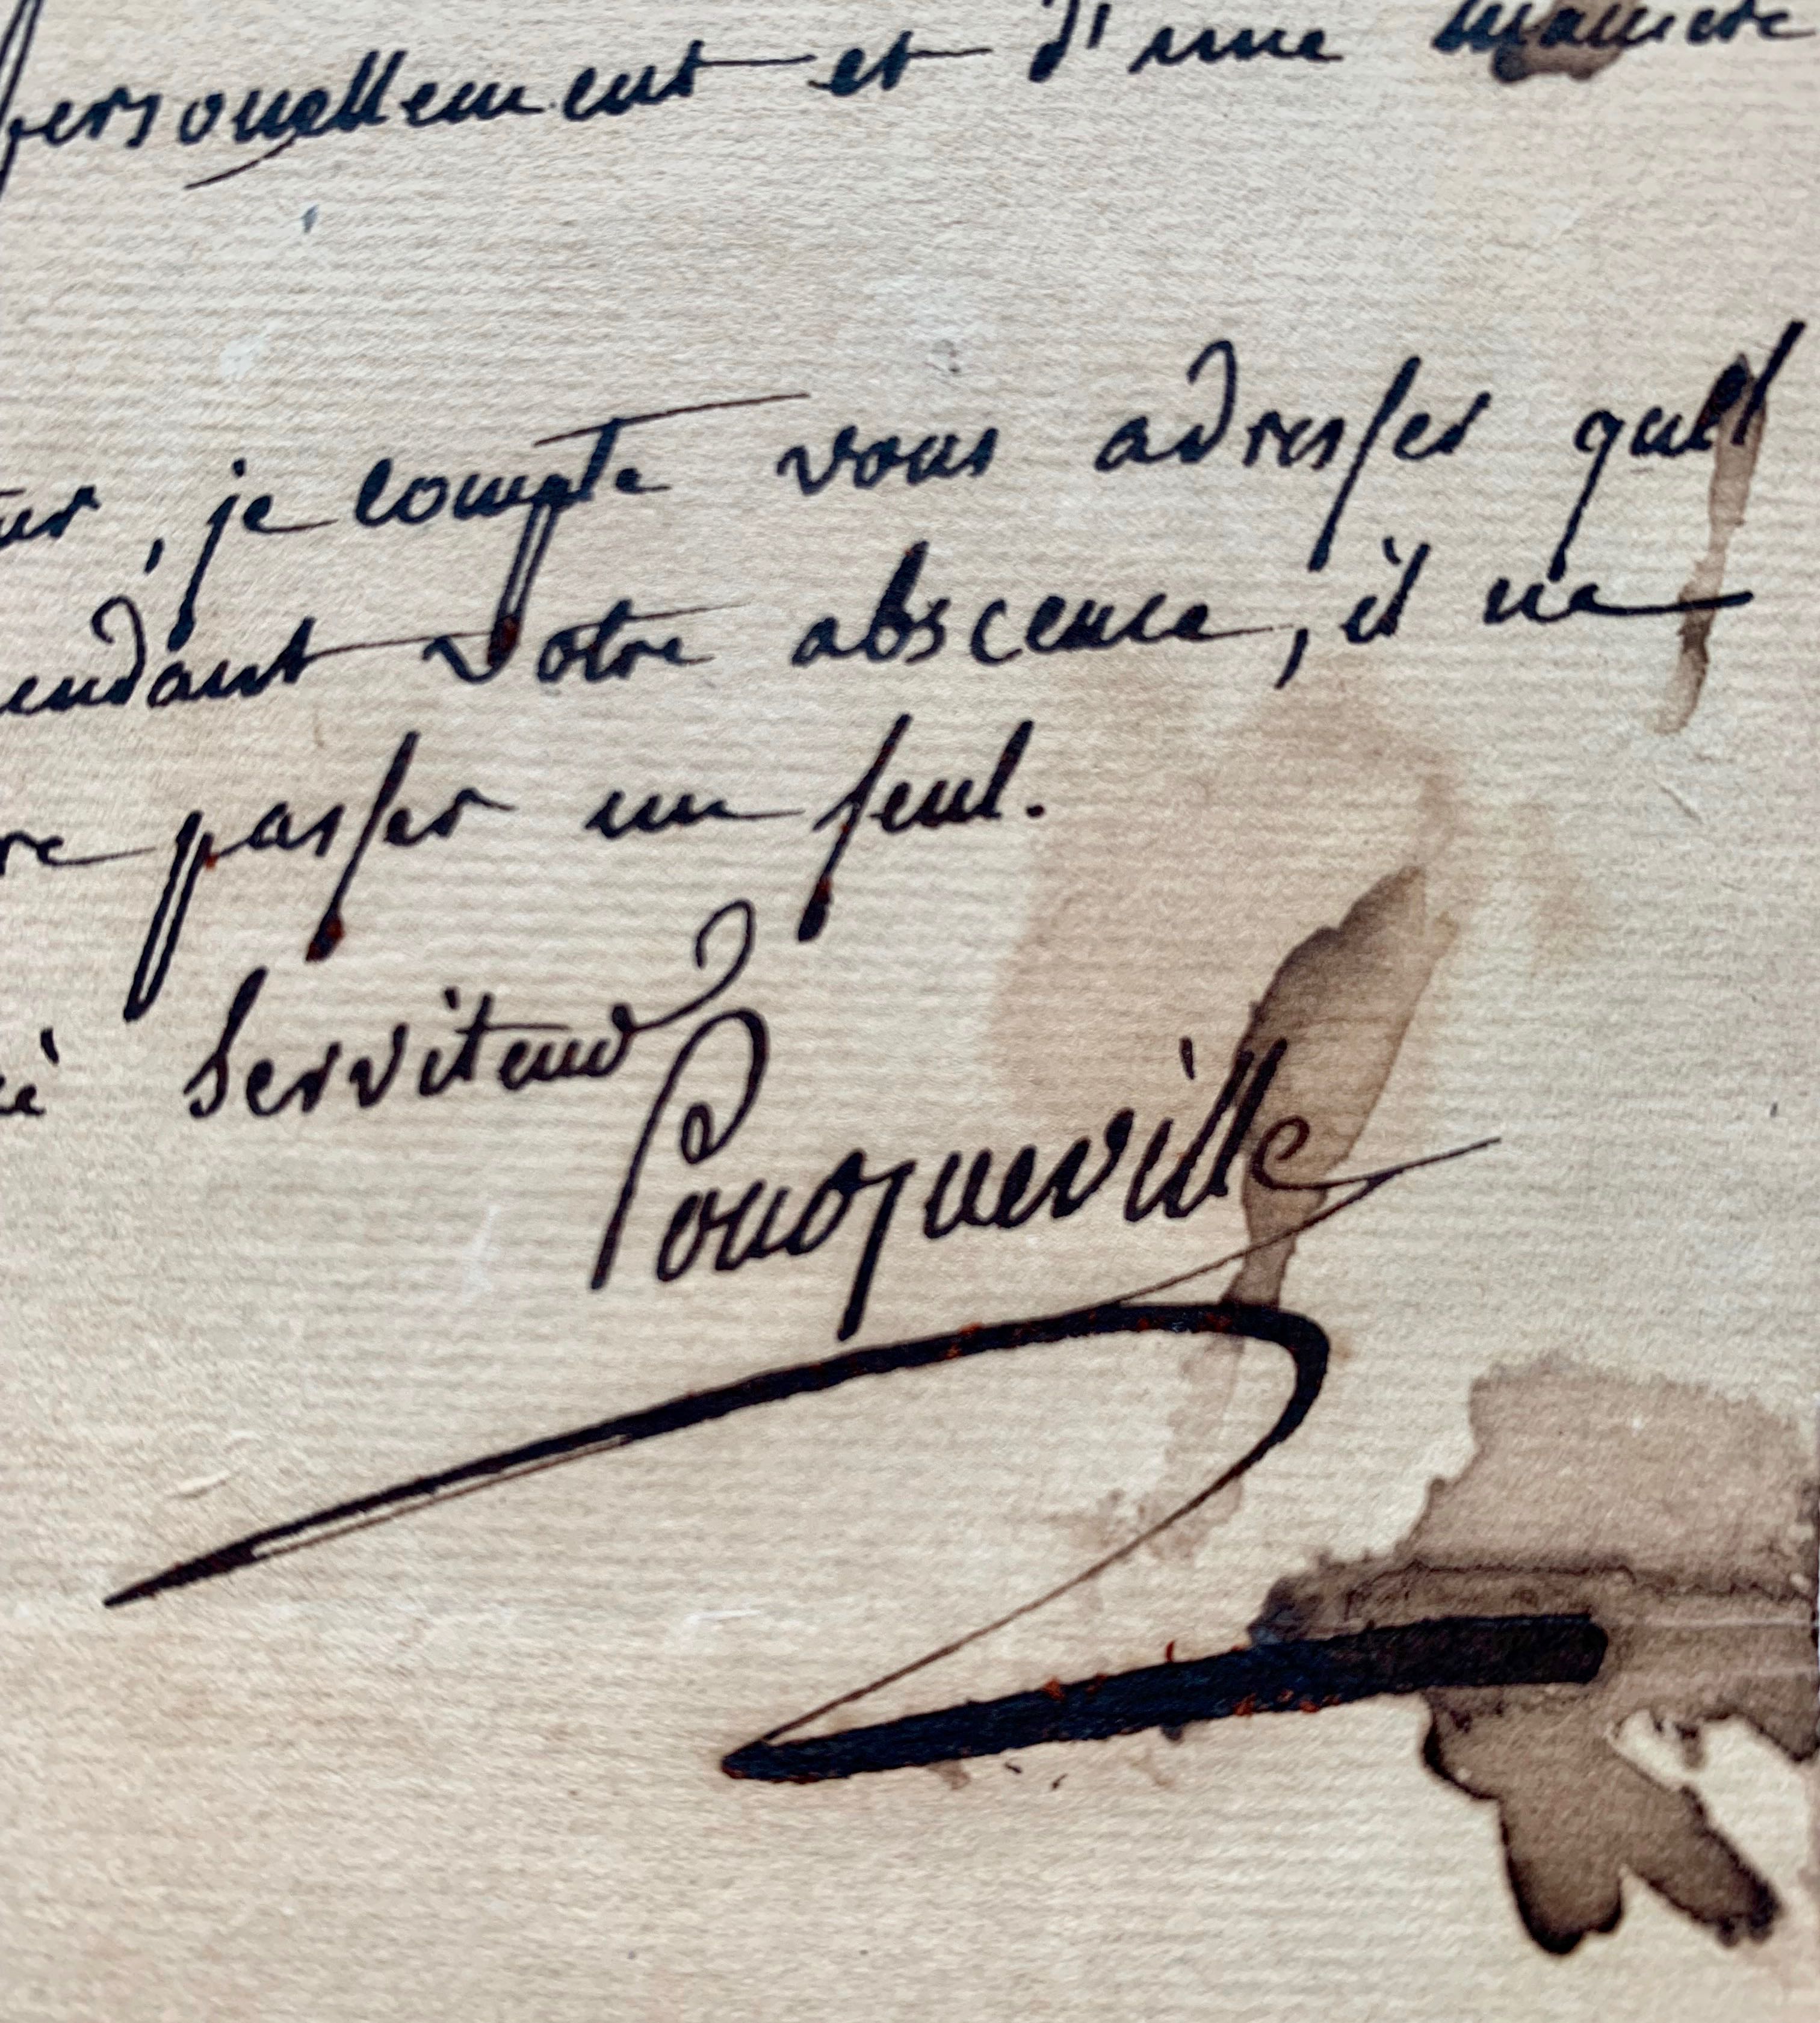 personellement et d'une maniere
eur, je compte vous adresser quel
endant votre abscence, il ne
re passer un seul.
é Serviteur
Pouqueville